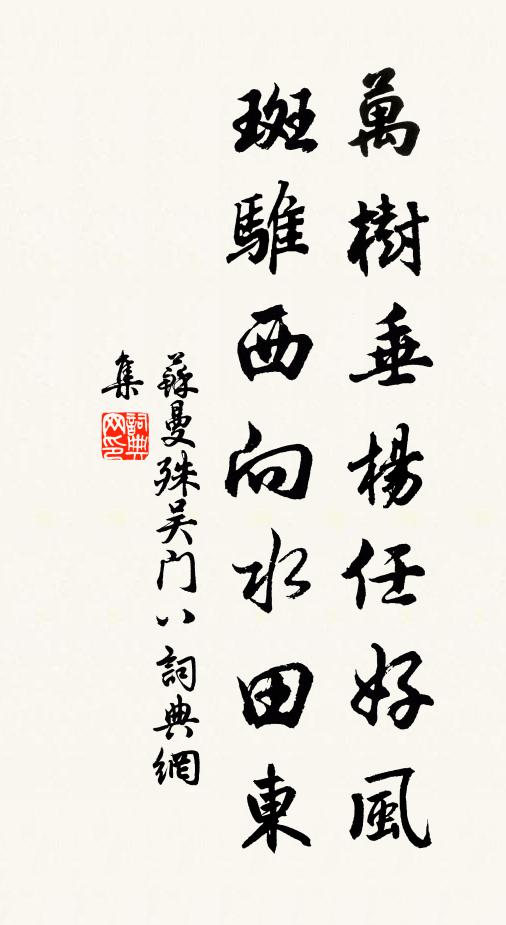 萬樹垂楊任好風
斑騅西向水田東
蘇曼殊吴门八詞典網
集
詞典
网印